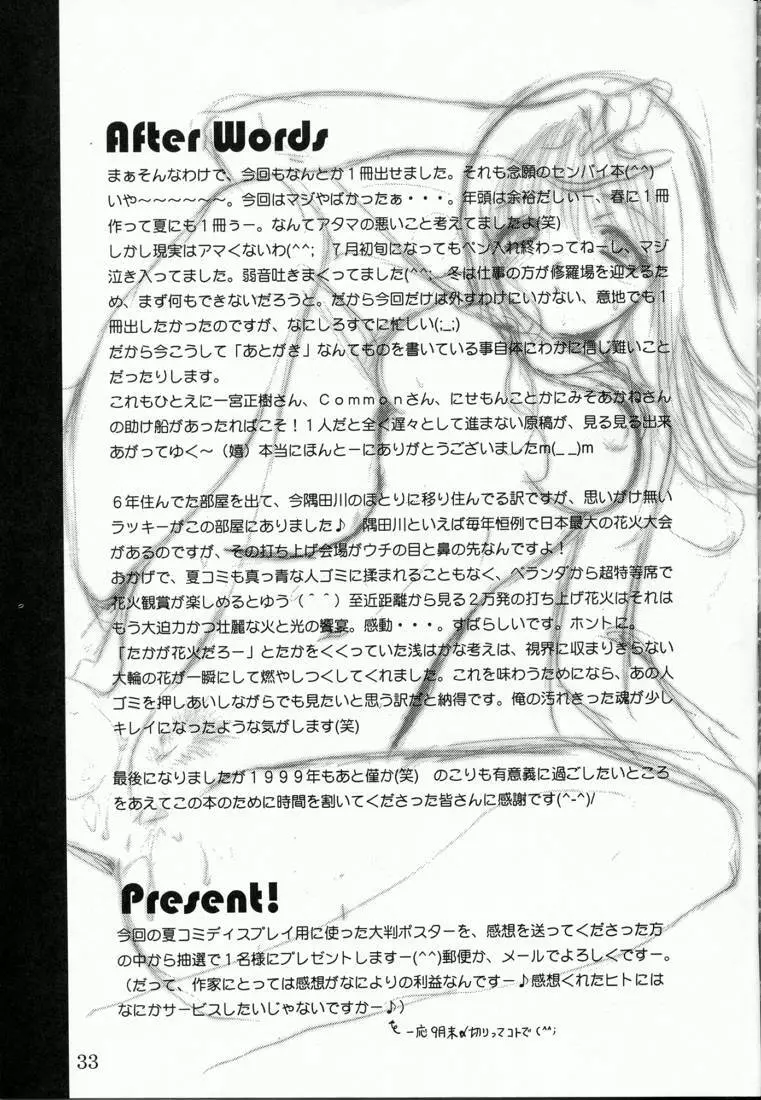 After Words
まぁそんなわけで、今回もなんとか1冊出せました。それも念願のセンパイ本(^^)
いや～～～～～～。今回はマジやばかったぁ・・・。年頭は余裕だしぃー、春に１冊
作って夏にも１冊ぅー。なんてアタマの悪いこと考えてましたよ(笑)
しかし現実はアマくないわ(^^;　７月初旬になってもペン入れ終わってねーし、マジ
泣き入ってました。弱音吐きまくってました(^^;　冬は仕事の方が修羅場を迎えるた
め、まず何もできないだろうと。だから今回だけは外すわけにいかない、意地でも１
冊出したかったのですが、なにしろすでに忙しい(;_;)
だから今こうして「あとがき」なんてものを書いている事自体にわかに信じ難いこと
だったりします。
これもひとえに一宮正樹さん、Ｃｏｍｍｏｎさん、にせもんことかにみそあかねさん
の助け船があったればこそ！１人だと全く遅々として進まない原稿が、見る見る出来
あがってゆく～（嬉）本当にほんとーにありがとうございましたm(_ _)m
６年住んでた部屋を出て、今隅田川のほとりに移り住んでる訳ですが、思いがけ無い
ラッキーがこの部屋にありました♪　隅田川といえば毎年恒例で日本最大の花火大会
があるのですが、その打ち上げ会場がウチの目と鼻の先なんですよ！
おかげで、夏コミも真っ青な人ゴミに揉まれることもなく、ベランダから超特等席で
花火観賞が楽しめるとゆう（＾＾）至近距離から見る２万発の打ち上げ花火はそれは
もう大迫力かつ壮麗な火と光の饗宴。感動・・・。すばらしいです。ホントに。
「たかが花火だろー」とたかをくくっていた浅はかな考えは、視界に収まりきらない
大輪の花が一瞬にして燃やしつくしてくれました。これを味わうためになら、あの人
ゴミを押しあいしながらでも見たいと思う訳だと納得です。俺の汚れきった魂が少し
キレイになったような気がします(笑)
最後になりましたが１９９９年もあと僅か(笑)　のこりも有意義に過ごしたいところ
をあえてこの本のために時間を割いてくださった皆さんに感謝です(^-^)/
Present!
今回の夏コミディスプレイ用に使った大判ポスターを、感想を送ってくださった方
の中から抽選で１名様にプレゼントしますー(^^)郵便か、メールでよろしくですー。
（だって、作家にとっては感想がなによりの利益なんですー♪感想くれたヒトには
なにかサービスしたいじゃないですかー♪）
一応9月末〆切りってコトで(^^;
33